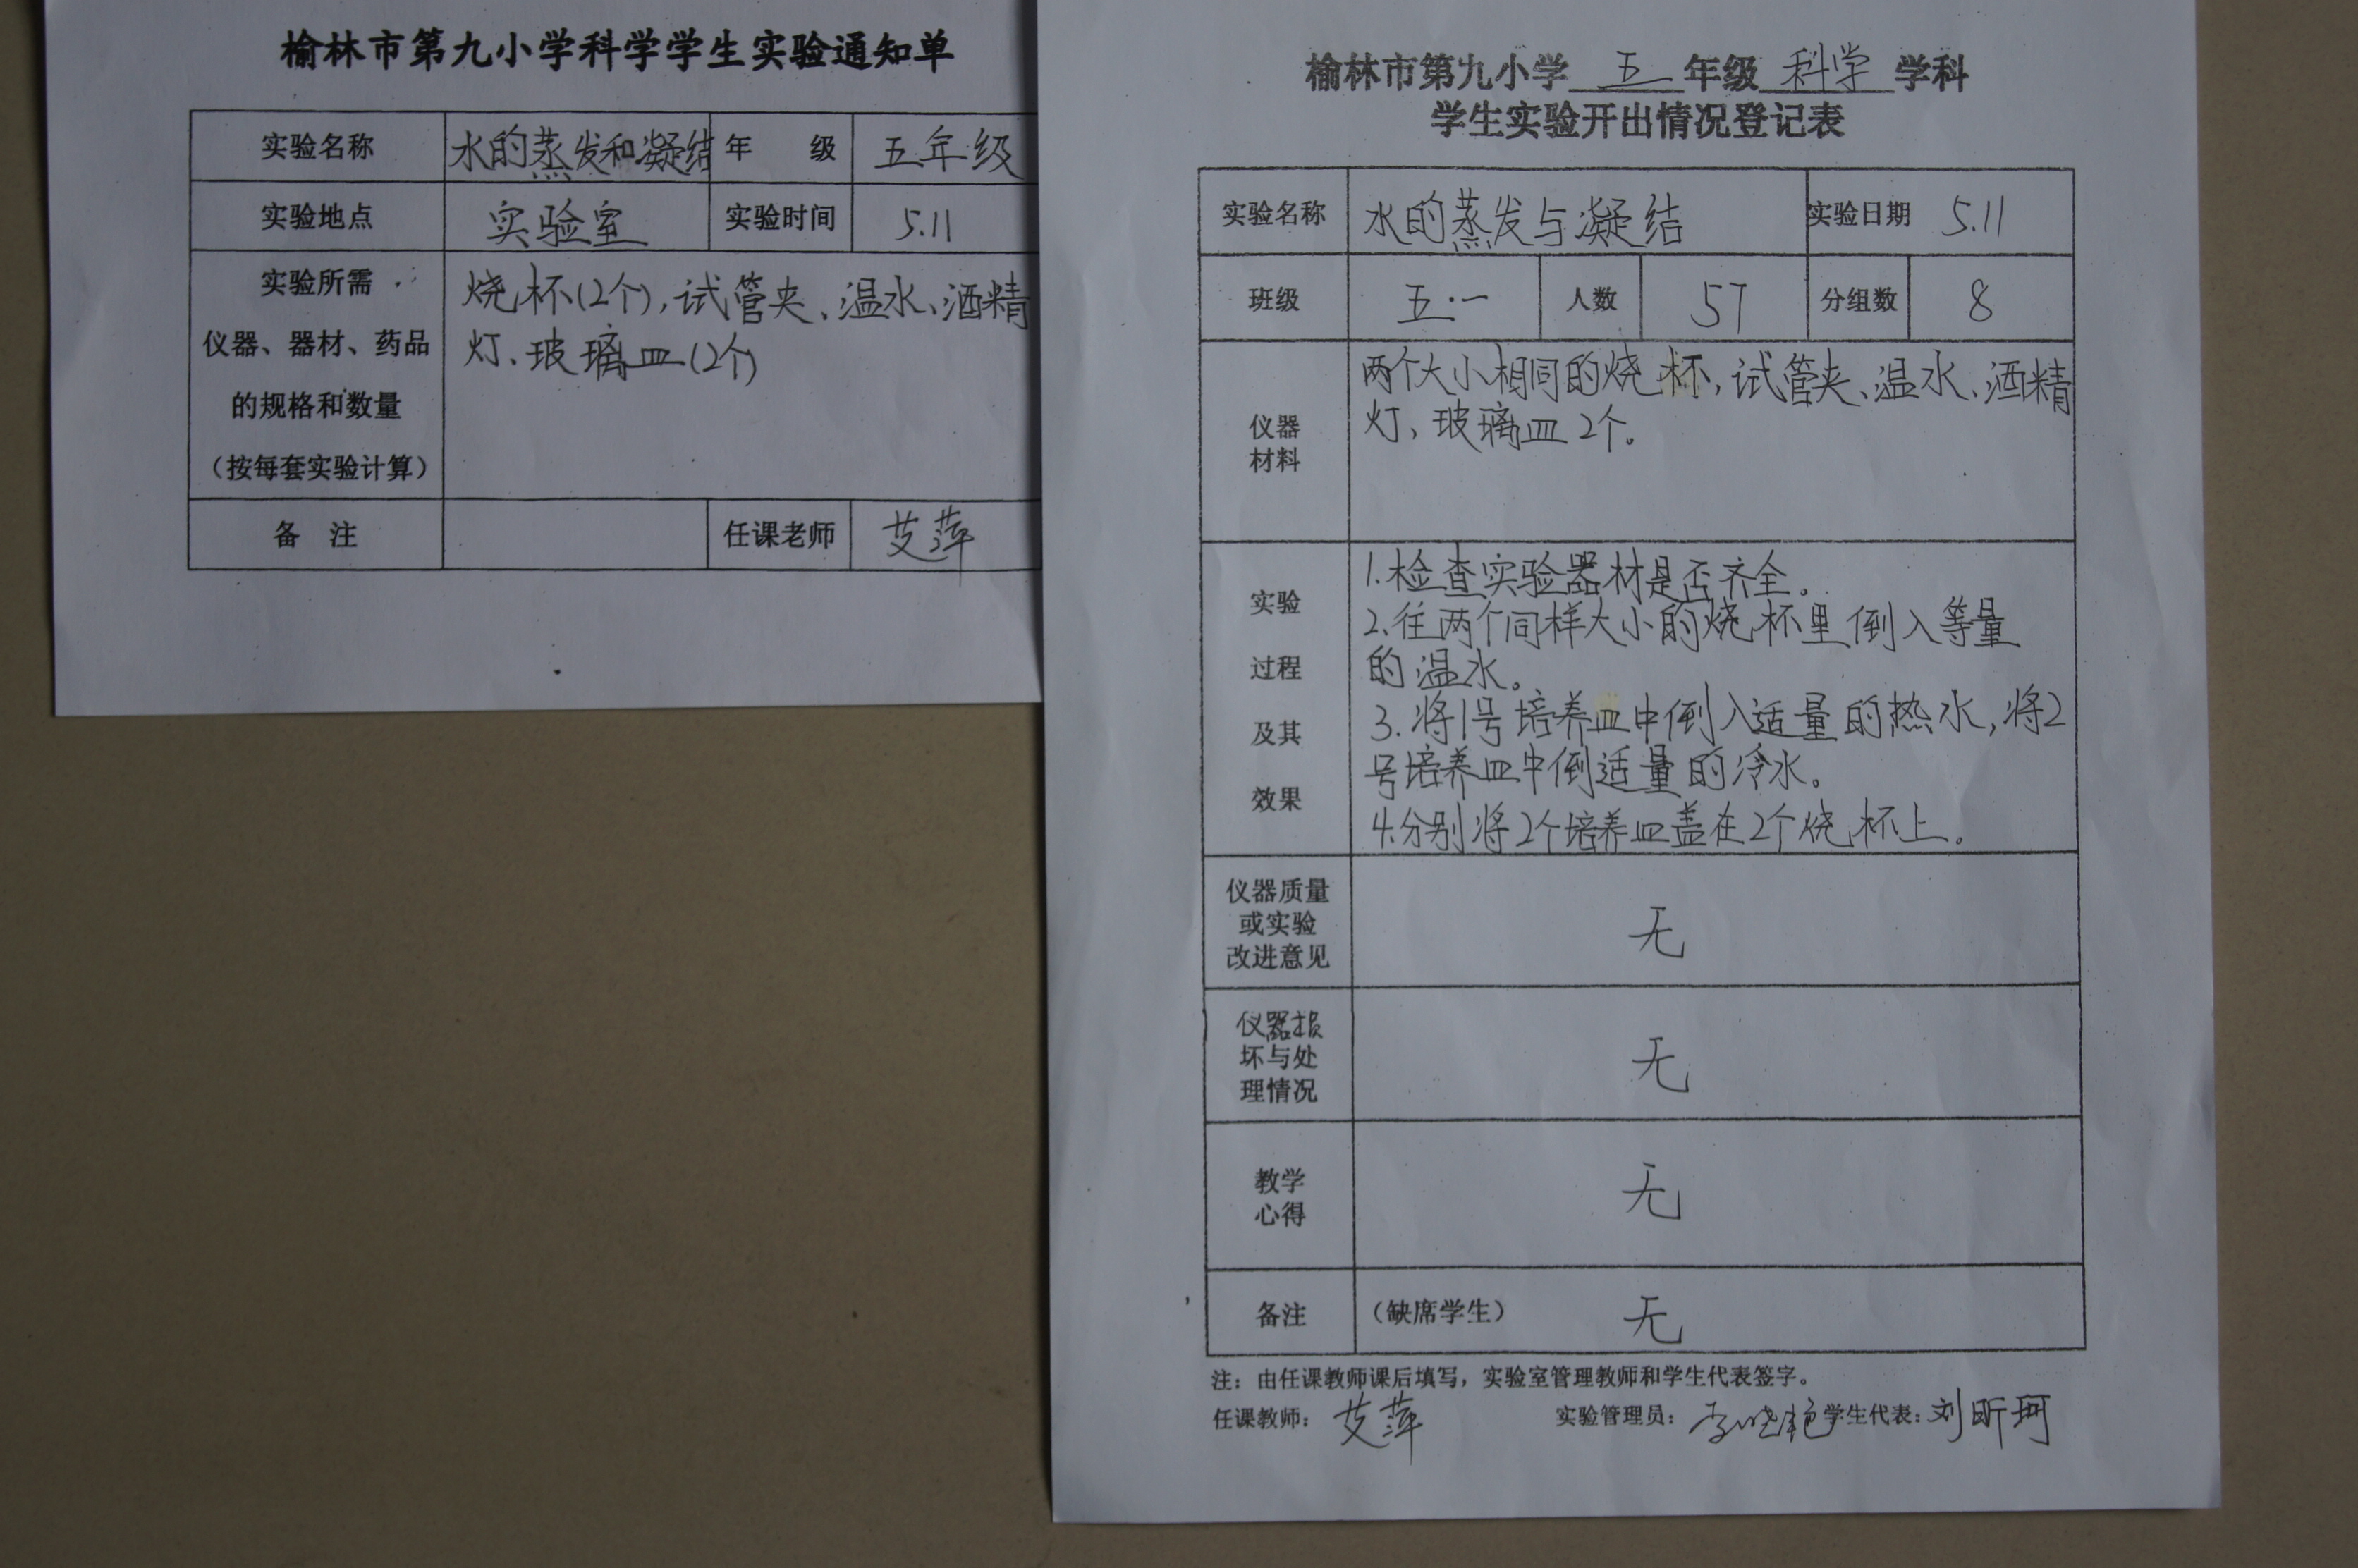 榆林市第九小学科学学生实验通知单
实验名称 水的蒸发和凝结 年 级 五年级
实验地点 实验室 实验时间 5.11
实验所需
仪器、器材、药品
的规格和数量
（按每套实验计算）
烧杯(2个),试管夹、温水、酒精
灯、玻璃皿(2个)
备 注 任课老师 艾萍
榆林市第九小学 五 年级 科学 学科
学生实验开出情况登记表
实验名称 水的蒸发与凝结 实验日期 5.11
班级 五·一 人数 57 分组数 8
仪器
材料
两个大小相同的烧杯,试管夹、温水、酒精
灯、玻璃皿2个。
实验
过程
及其
效果
1.检查实验器材是否齐全。
2.往两个同样大小的烧杯里倒入等量
的温水。
3.将1号培养皿中倒入适量的热水,将2
号培养皿中倒适量的冷水。
4.分别将2个培养皿盖在2个烧杯上。
仪器质量
或实验
改进意见
无
仪器损
坏与处
理情况
无
教学
心得
无
备注 （缺席学生） 无
注：由任课教师课后填写，实验室管理教师和学生代表签字。
任课教师： 艾萍 实验管理员： 李晓艳 学生代表： 刘昕珂